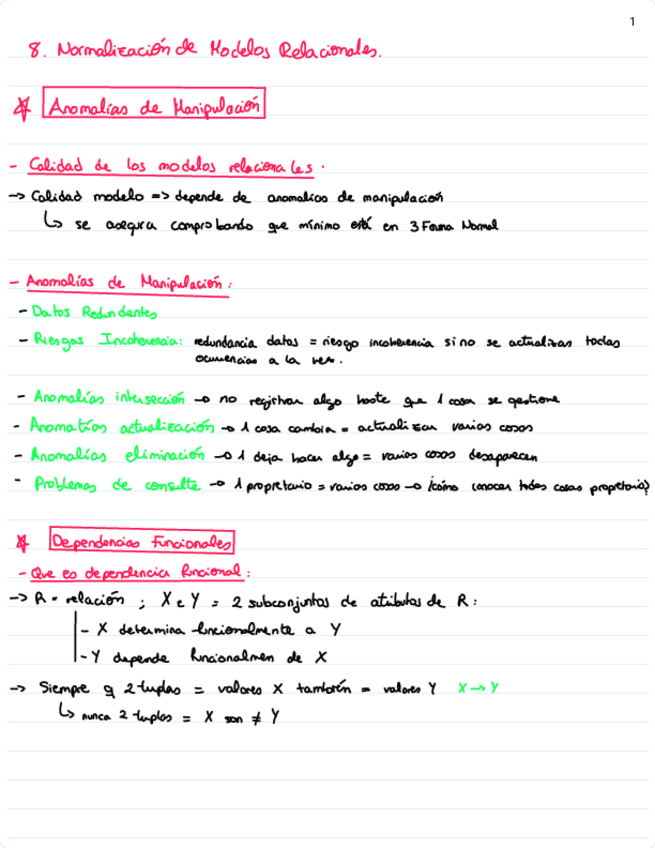 1
8. Normalización de Modelos Relacionales.
* Anomalías de Manipulación
- Calidad de los modelos relacionales.
→ Calidad modelo => depende de anomalias de manipulación
↳ se asegura comprobando que mínimo está en 3 Forma Normal
- Anomalías de Manipulación:
- Datos Redundentes
- Riesgos Incoherencia: redundancia datos = riesgo incoherencia si no se actualizan todas
ocurrencias a la vez.
- Anomalías intersección → no registrar algo hasta que 1 cosa se gestione
- Anomalías actualización → 1 cosa cambia = actualizar varias cosas
- Anomalías eliminación → 1 deja hacer algo = varias cosas desaparecen
- Problemas de consulta → 1 propietario = varias casas → ¿cómo conocer todas casas propietario?
* Dependencias Funcionales
- Que es dependencia funcional:
→ R = relación ; X e Y = 2 subconjuntos de atributos de R:
- X determina funcionalmente a Y
- Y depende funcionalmen de X
→ Siempre q 2 tuplas = valores X también = valores Y X → Y
↳ nunca 2 tuplas = X son ≠ Y